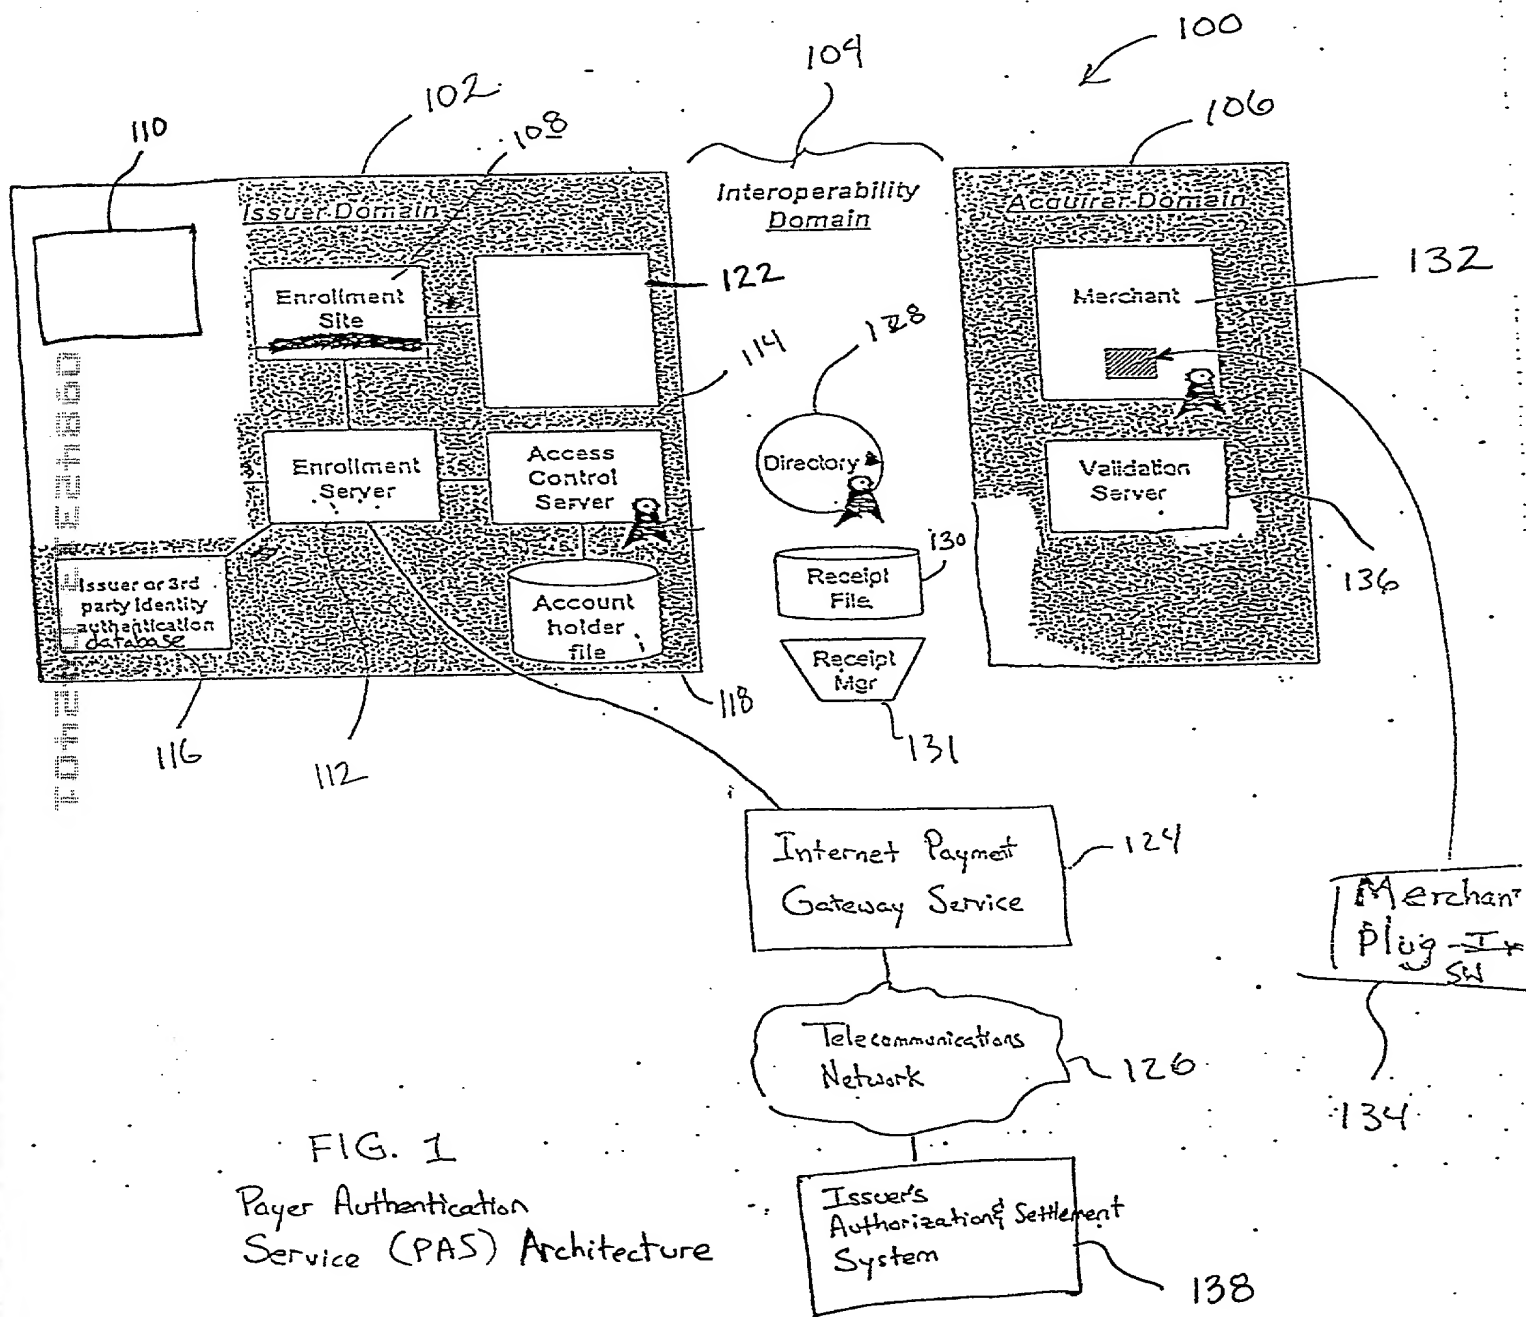 100
104
102
106
108
110
Issuer Domain
Interoperability
Domain
Acquirer Domain
Enrollment
Site
122
Merchant
132
114
128
Enrollment
Server
Access
Control
Server
Directory
Validation
Server
130
Receipt
File
136
Issuer or 3rd
party identity
authentication
database
Account
holder
file
Receipt
Mgr
118
116
112
131
Internet Payment
Gateway Service
124
Merchan
Plug-In
SW
Telecommunications
Network
126
134
FIG. 1
Payer Authentication
Service (PAS) Architecture
Issuer's
Authorization & Settlement
System
138